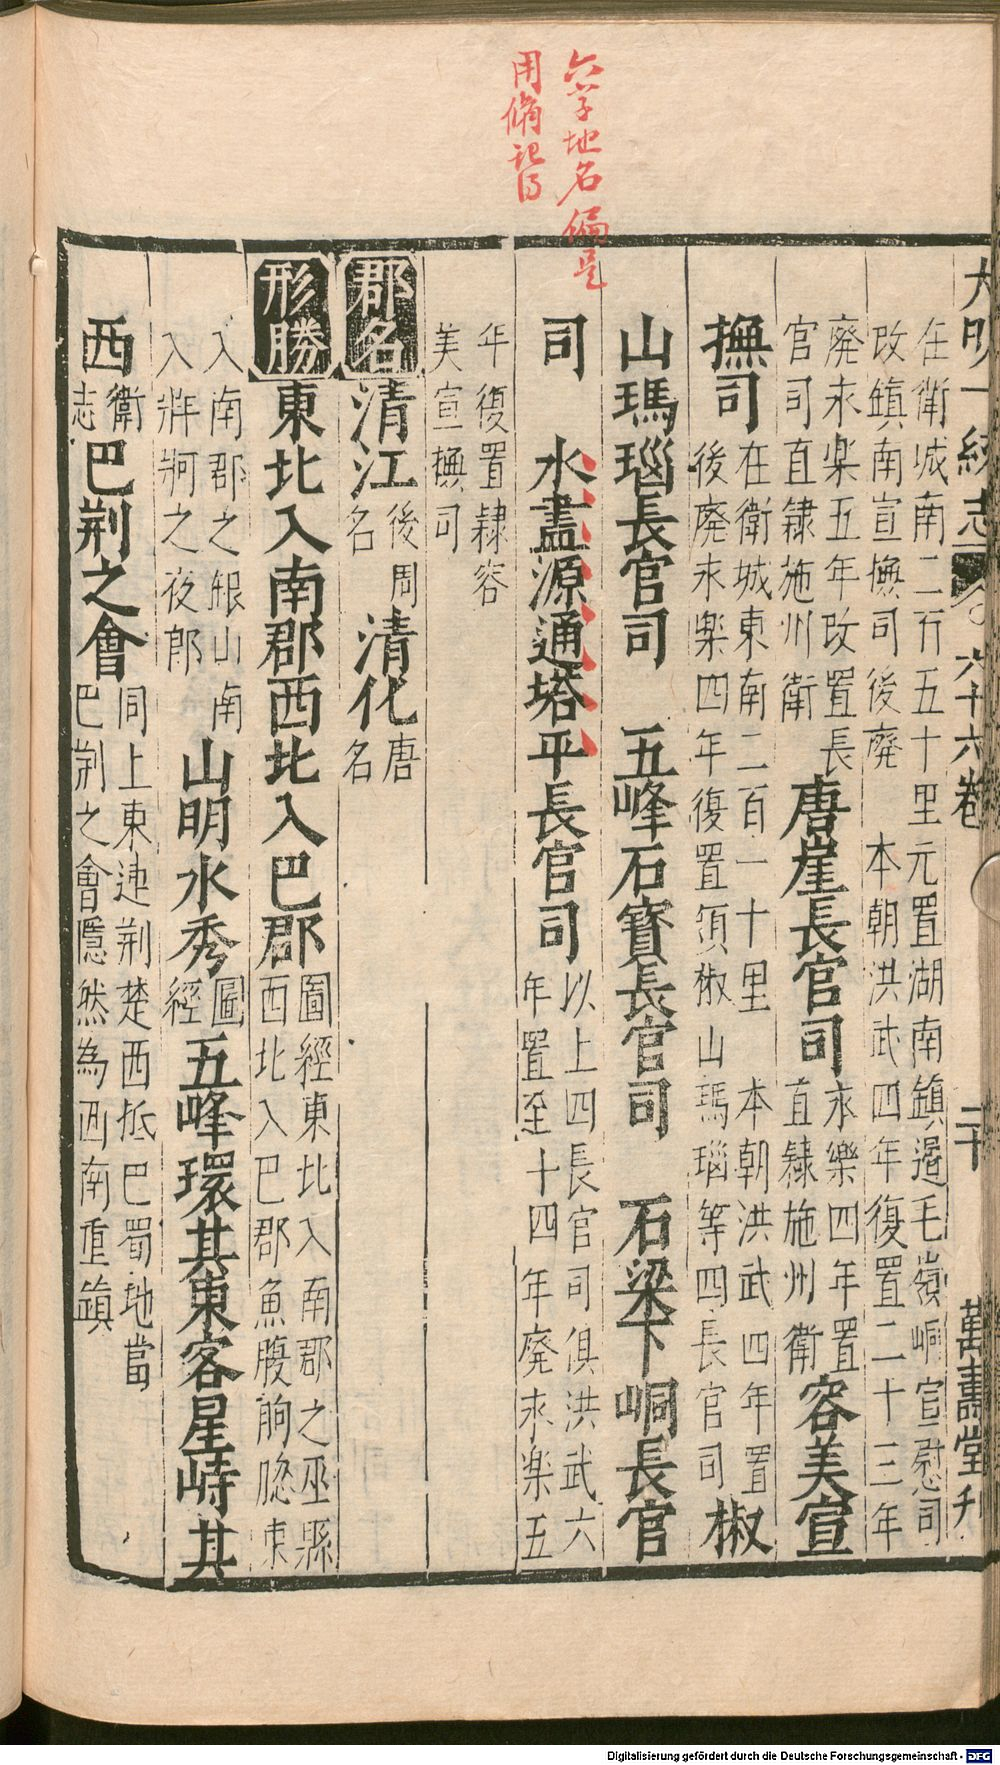 大明一統志 六十六卷 二十 萬壽堂刋
在衛城南二百五十里元置湖南鎮邉毛嶺峒宣慰司
改鎮南宣撫司後廢 本朝洪武四年復置二十三年
廢永樂五年改置長
官司直隷施州衛
唐崖長官司
永樂四年置
直隷施州衛
容美宣
撫司
在衛城東南二百一十里 本朝洪武四年置
後廢永樂四年復置領椒山瑪瑙等四長官司
椒
山瑪瑙長官司 五峰石寶長官司 石梁下峒長官
司 水盡源通塔平長官司
以上四長官司俱洪武六
年置至十四年廢永樂五
年復置隷容
美宣撫司
郡名
清江
後周
名
清化
唐
名
形勝
東北入南郡西北入巴郡
圖經東北入南郡之巫縣
西北入巴郡魚腹朐䏰東
入南郡之佷山南
入牂牁之夜郎
山明水秀
圖
經
五峰環其東客星峙其
西
衛
志
巴荆之會
同上東連荆楚西抵巴蜀地當
巴荆之會隱然為西南重鎮
六字地名偏是
用偹記
Digitalisierung gefördert durch die Deutsche Forschungsgemeinschaft - DFG